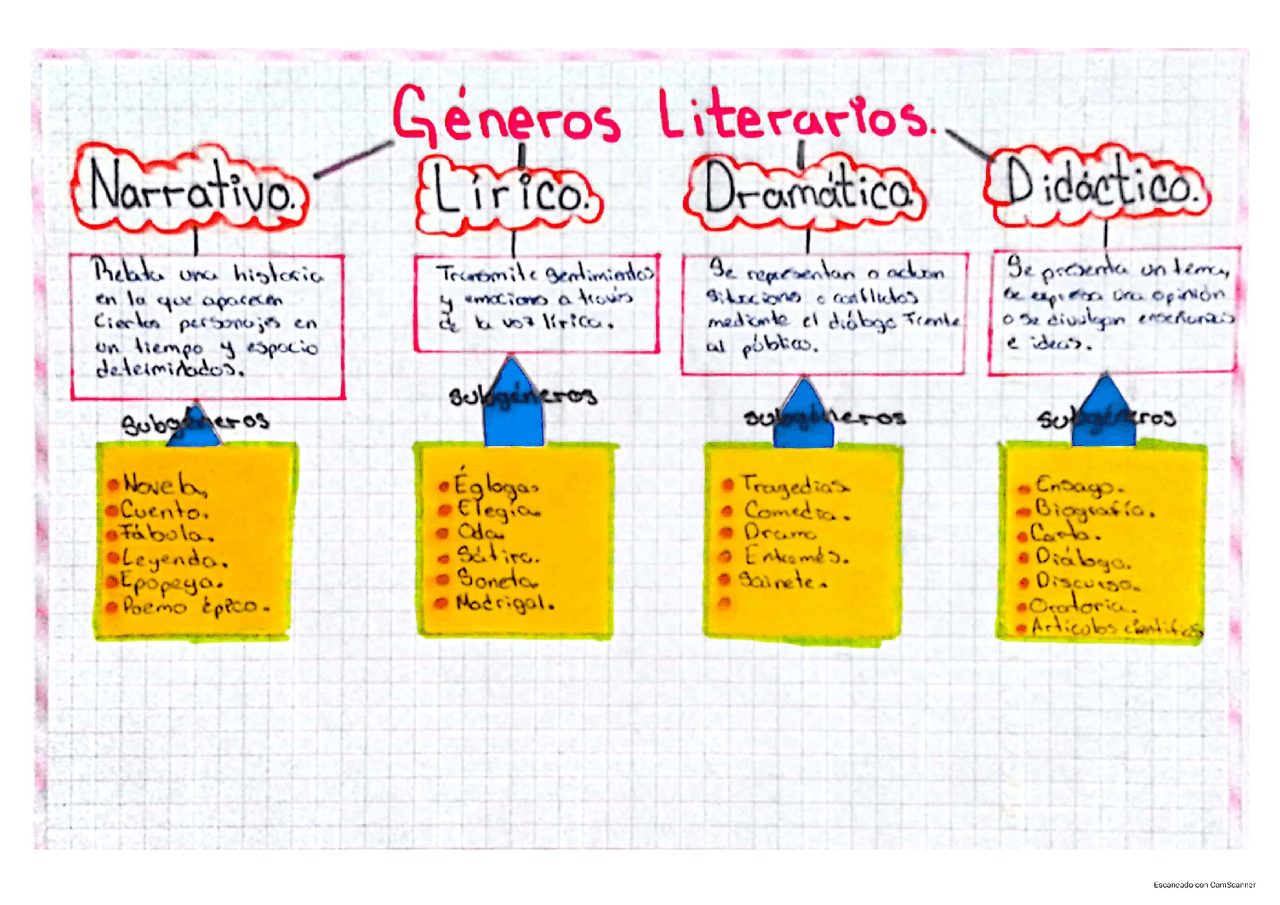 Géneros Literarios.
Narrativo.
Relata una historia
en la que aparecen
Ciertos personajes en
un tiempo y espacio
determinados.
Subgéneros
Novela,
Cuento.
Fábula.
Leyenda.
Epopeya.
Poema épico.
Lírico.
Transmite sentimientos
y emociones a través
de la voz lírica.
subgéneros
Églogas
Elegía.
Oda
Sátira.
Soneto.
Madrigal.
Dramático.
Se representan o actúan
situaciones o conflictos
mediante el diálogo frente
al público.
subgéneros
Tragedias
Comedia.
Drama
Entremés.
Sainete.
Didáctico.
Se presenta un tema,
se expresa una opinión
o se divulgan enseñanzas
e ideas.
subgéneros
Ensayo.
Biografía.
Carta.
Diálogo.
Discurso.
Oratoria.
Artículos científicos
Escaneado con CamScanner